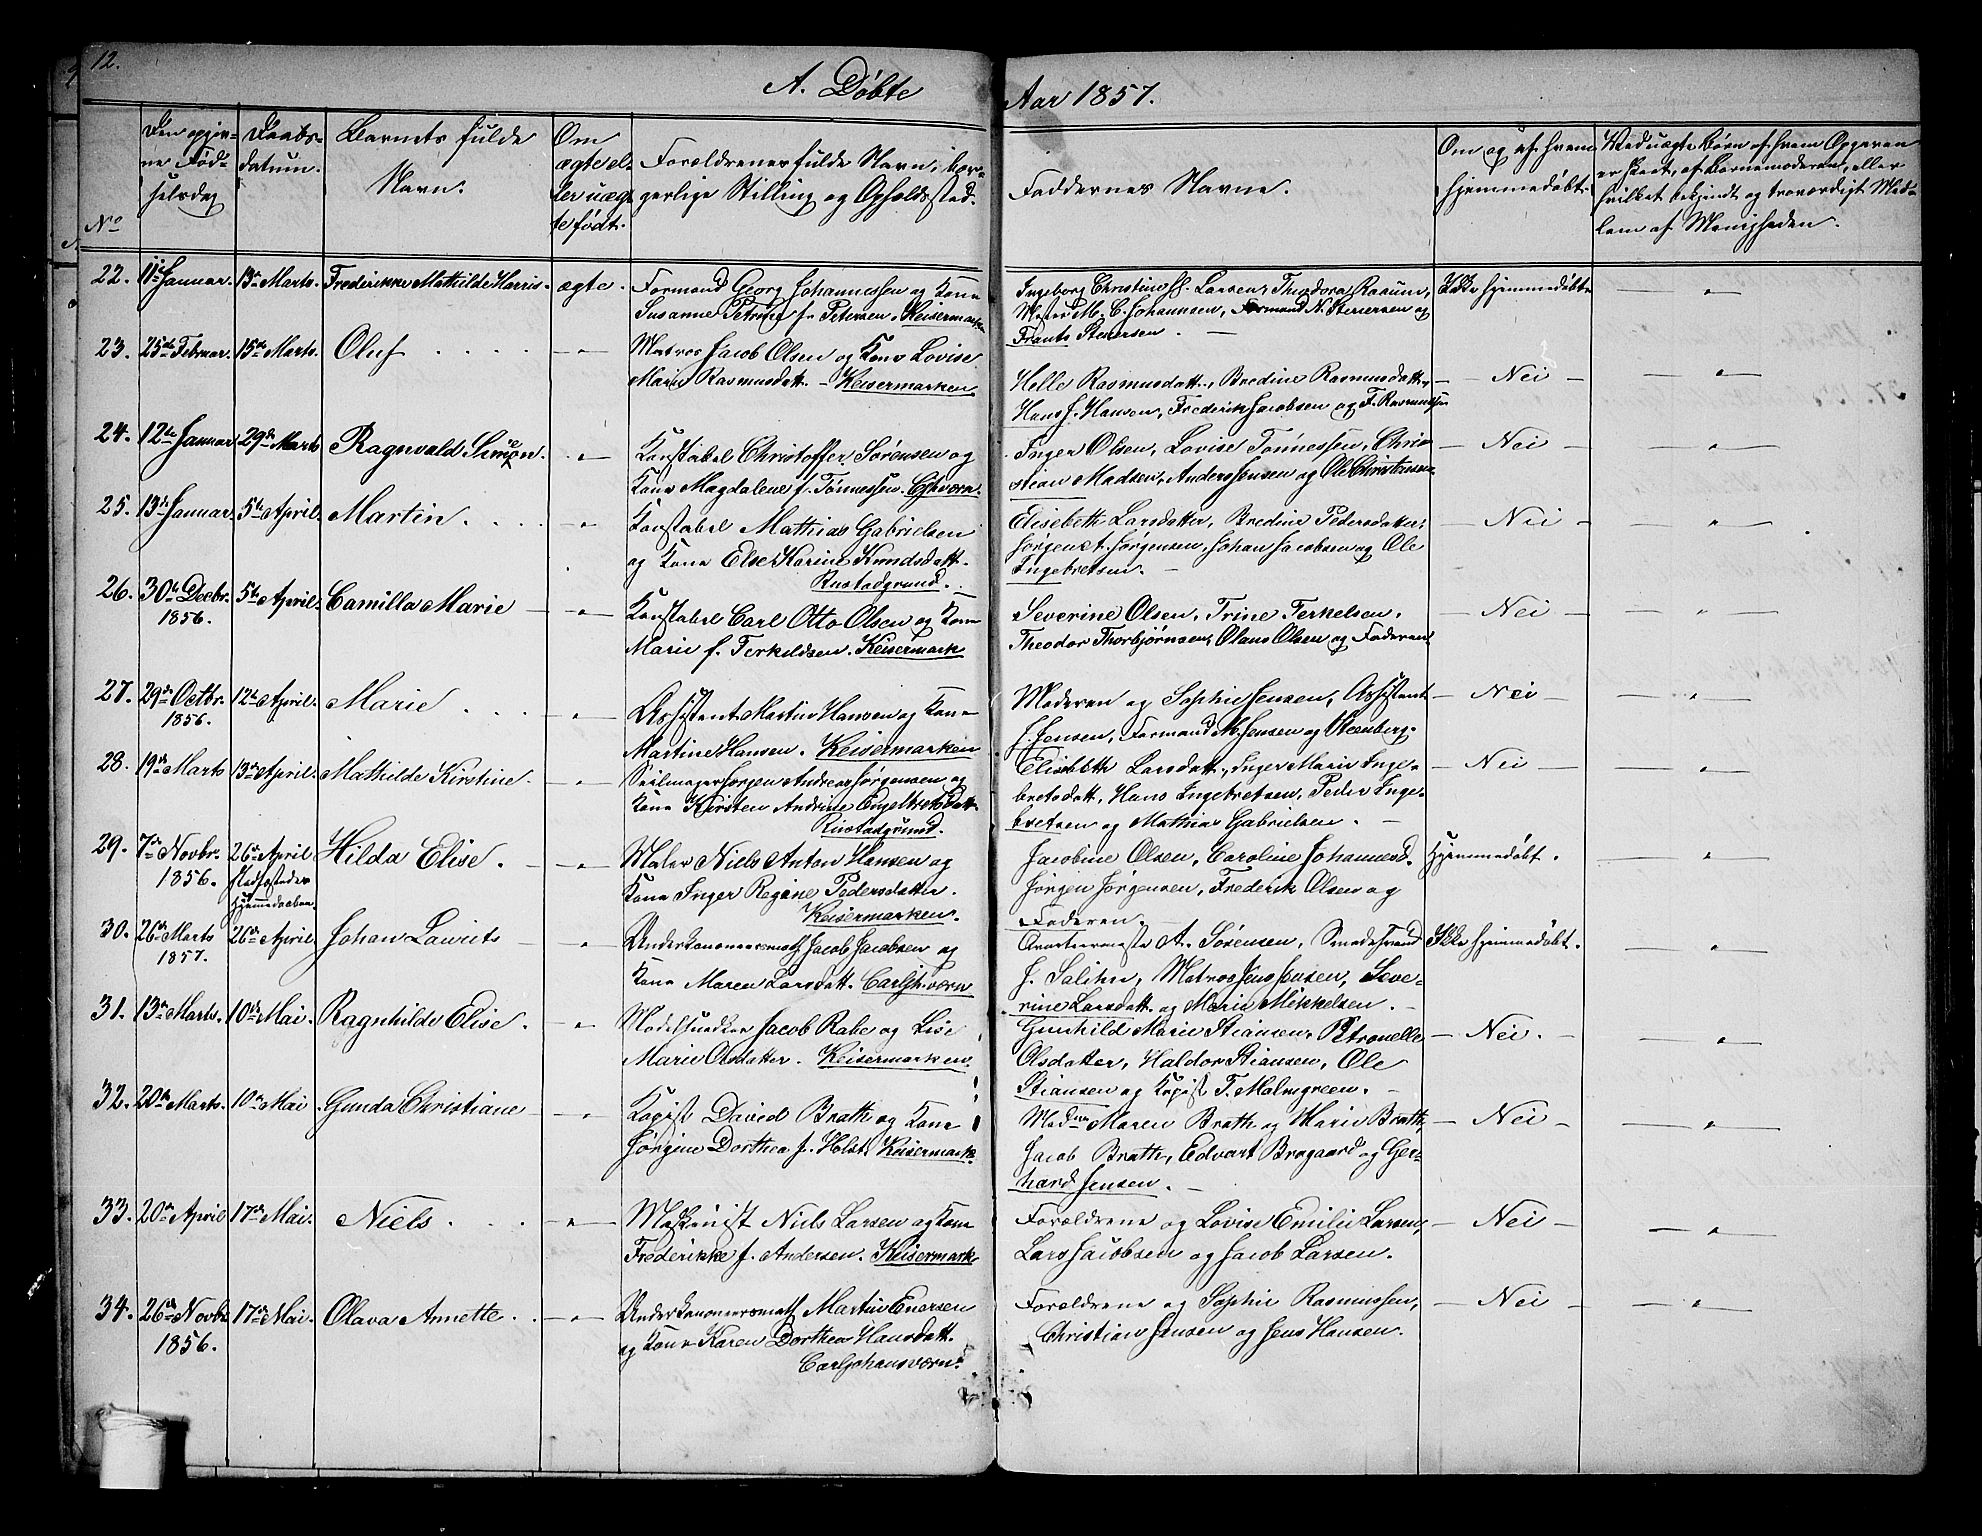 12.
A. Döbte
Aar 1857.
No
Den opgiv-
ne Föd-
selsdag
Daabs-
datum.
Barnets fulde
Navn.
Om
ægte el-
ler uæg-
te födt.
Forældrenes fulde Navn, bor-
gerlige Stilling og Opholdssted.
Faddernes Navne.
Om og af hvem
hjemmedöbt.
Ved uægte Börn af hvem Opgaven
er skeet, af Barnemoderen, eller
hvilket bekjendt og troværdigt Med-
lem af Menigheden.
22. 11te Januar. 13de Marts. Frederikke Mathilde Harris. ægte. Formand Georg Johannessen og Kone
Susanne Petrine f. Petersen. Keisermarken
Ingeborg Christine Larsen, Theodora Raaum,
Mester M. C. Johannsen, Formand N. Stenersen og
Frants Stenersen. Ikke hjemmedöbt
23. 25de Februar. 15de Marts. Oluf Matros Jacob Olsen og Kone Lovise
Marie Rasmusdatt. Keisermarken
Helle Rasmusdatt., Bredine Rasmusdatt.,
Hans J. Hansen, Frederik Jacobsen og F. Rasmussen — Nei —
24. 12te Januar 29de Marts Ragnvald Simon. Konstabel Christoffer Sörensen og
Kone Magdalene f. Tönnessen.
Inger Olsen, Lovise Tönnessen, Chri-
stian Madsen, Anders Jensen og Ole Christensen — Nei —
25. 13de Januar. 5te April. Martin Konstabel Mathias Gabrielsen
og Kone Else Karine Knudsdatt.
Rustadgrund.
Elisebeth Larsdatter, Bredine Pedersdatter,
Jörgen A. Jörgensen, Johan Jacobsen og Ole
Ingebretsen. — Nei —
26. 30te Decbr.
1856. 5te April. Camilla Marie Konstabel Carl Otto Olsen og Kone
Marie f. Terkeldsen. Keisermark
Severine Olsen, Trine Terkelsen,
Theodor Thorbjörnsen, Olaus Olsen og Faderen — Nei —
27. 29de Octbr.
1856. 12te April. Marie Assistent Martin Hansen og Kone
Martine Hansen. Keisermarken
Moderen og Sophie Jensen, Assistent
J. Jensen, Formand M. Jensen og Steenberg. — Nei —
28. 19de Marts 13de April. Mathilde Kirstine. Seilmager Jörgen Andreas Jörgensen og
Kone Kirsten Andrine Engebretsdatt.
Rustadgrund.
Elisebeth Larsdatt., Inger Marie Inge-
bretsdatt, Hans Ingebretsen, Peder Inge-
bretsen og Mathias Gabrielsen. — Nei —
29. 7de Novbr.
1856. 26de April
Stadfæstedes
Hjemmedaaben. Hilda Elise. Maler Niels Anton Hansen og
Kone Inger Regine Pedersdatter.
Keisermarken.
Jacobine Olsen, Caroline Johannesd.
Jörgen Jörgensen, Frederik Olsen og
Faderen. Hjemmedöbt.
30. 26de Marts
1857. 26de April. Johan Laurits Underkanoneersmath Jacob Jacobsen og
Kone Maren Larsdatt. Carljh.værn
Qvarteermester A. Sörensen, Smedesvend
J. Salihn, Matros Jens Jensen, Seve-
rine Larsdatt. og Marie Mikkelsen. Ikke hjemmedöbt.
31. 13de Marts. 10de Mai. Ragnhilde Elise. Modelsnedker Jacob Rabe og Lise
Marie Olsdatter. Keisermarken
Gunhild Marie Stiansen, Petronelle
Olsdatter, Haldor Stiansen, Ole
Stiansen og Kopist F. Malmgreen. — Nei. —
32. 20de Marts. 10de Mai Gunda Christiane Kopist David Brath og Kone
Jörgine Dorthea f. Holst, Keisermark.
Madme Maren Brath og Marie Brath,
Jacob Brath, Edvart Bragaard og Ger-
hard Jensen. — Nei —
33. 20de April 17de Mai. Niels Maskinist Niels Larsen og Kone
Frederikke f. Andersen. Keisermark
Forældrene og Lovise Emilie Larsen,
Lars Jacobsen og Jacob Larsen. — Nei —
34. 26de Novbr.
1856. 17de Mai. Olava Annette Underkanoneersmath Martin Enersen
og Kone Karen Dorthea Hansdatt.
Carljohansværn.
Forældrene og Sophie Rasmussen,
Christian Jensen og Jens Hansen. — Nei —